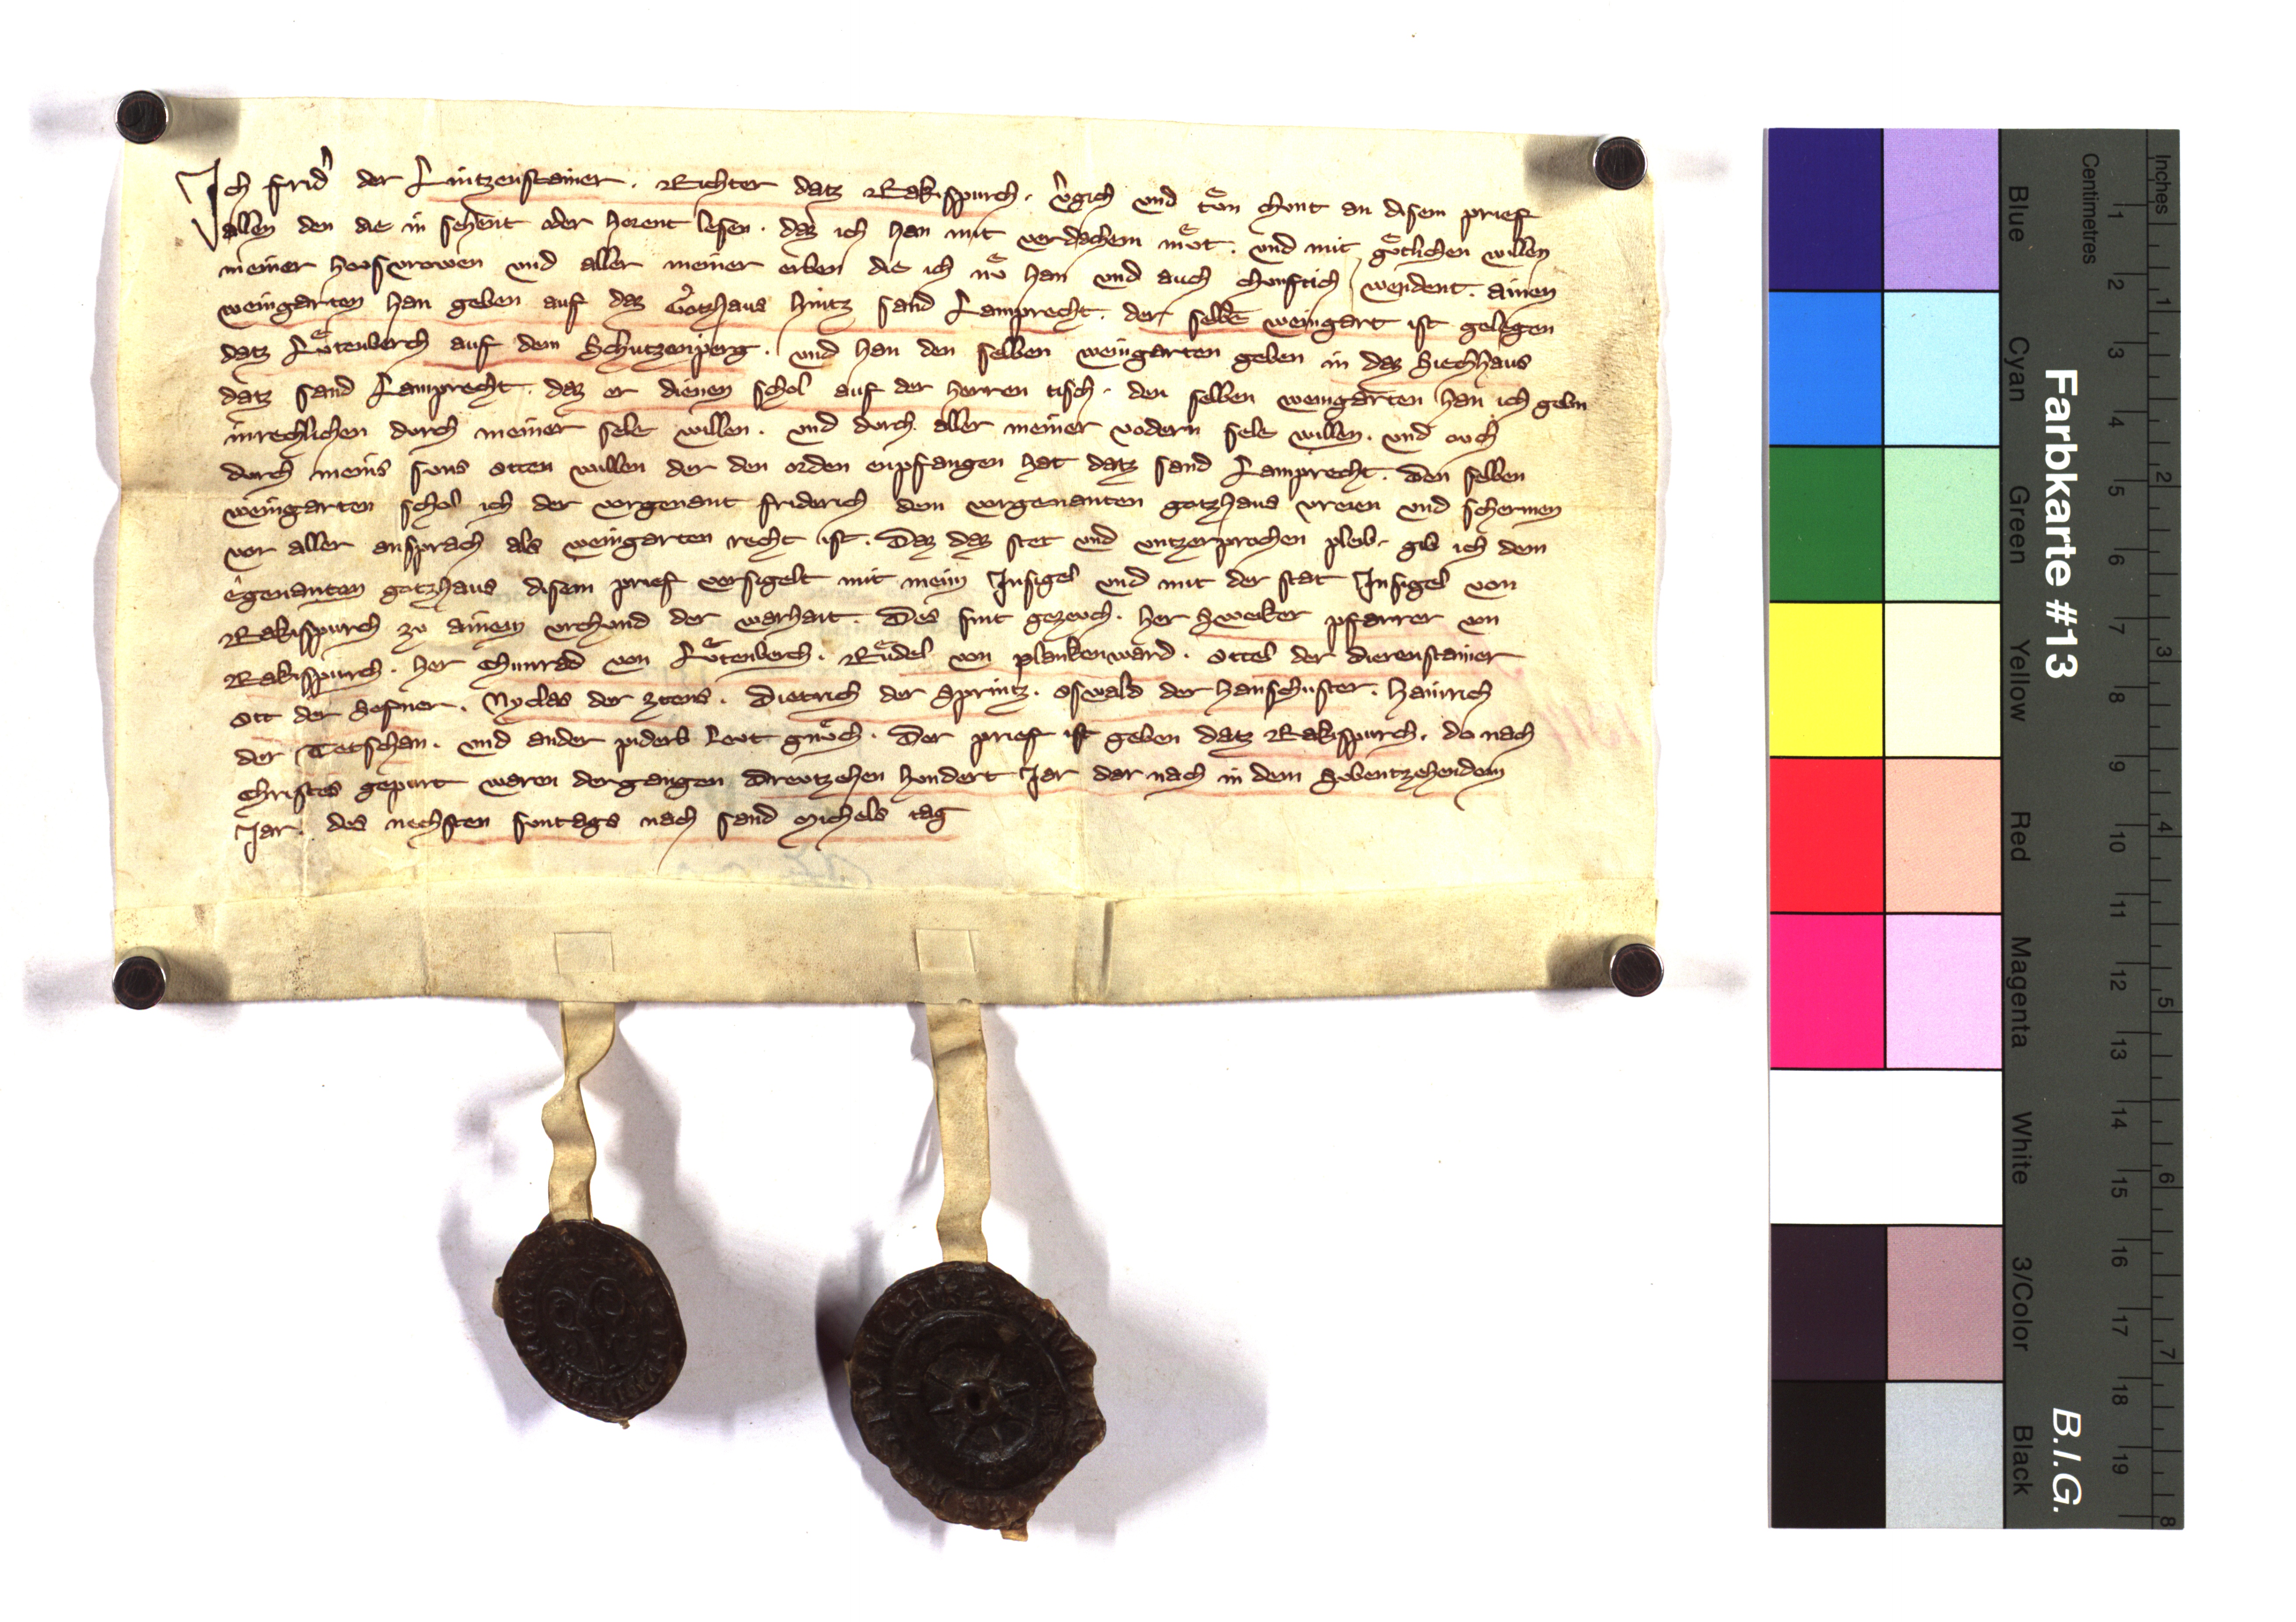 Ich frid' der Lintzenstainer . Richter datz Rakispurch . v'gich vnd tuͦn chunt an disem prief
allen den die in sehent oder horent lesen . daz ich han mit verdachem muͦt . vnd mit guͦtlichen willen
meiner hovsvrowen vnd aller meiner erben die ich nuͦ han vnd auch chunftich werdent . ainen
weingarten han geben auf daz Gotzhaus hintz sand Lamprecht . der selbe weingart ist gelegen
datz Luͦtenberch auf dem Schutzenperg . vnd han den selben weingarten geben in daz Siechhaus
datz sand Lamprecht . daz er dienen schol auf der herren tisch . den selben weingarten han ich gebn
inrechlichen durch meiner sele willen . vnd durch aller meiner vodern sele willen . vnd ovch
durch meins suns Otten willen der den orden enpfangen hat datz sand Lamprecht . Den selben
weingarten schol ich der vorgenant friderich dem vorgenanten gotzhaus vreien vnd schermen
vor aller ansprach als weingarten recht ist . Daz daz stet vnd vntzerprochen pleib . gib ich dem
egenanten gotzhaus disem prief versigelt mit meim Insigel vnd mit der stat Insigel von
Rakispurch zv ainem vrchund der warhait . Des sint gezevch . her Sweiker pfarrer von
Rakispurch . her Chunrad von Luͦtenberch . Ruͦdel von plankenward . Ottel der Dierenstainer
Ott der Hefner . Nyclas der ztens . Dietrich der Sprintz . Oswald der hanschuster . Hainrich
der Tetschan . vnd ander piderb levt gnuͦch . Der prief ist geben datz Rakispurch . do nach
Christes gepurt waren dergangen Drevtzehen hundert Jar dar nach in dem Sibentzehendem
Jar . des nechsten suntags nach sand Michels tag
Farbkarte #13
B.I.G.
Inches
1 2 3 4 5 6 7 8
Centimetres
1 2 3 4 5 6 7 8 9 10 11 12 13 14 15 16 17 18 19
Blue
Cyan
Green
Yellow
Red
Magenta
White
3/Color
Black